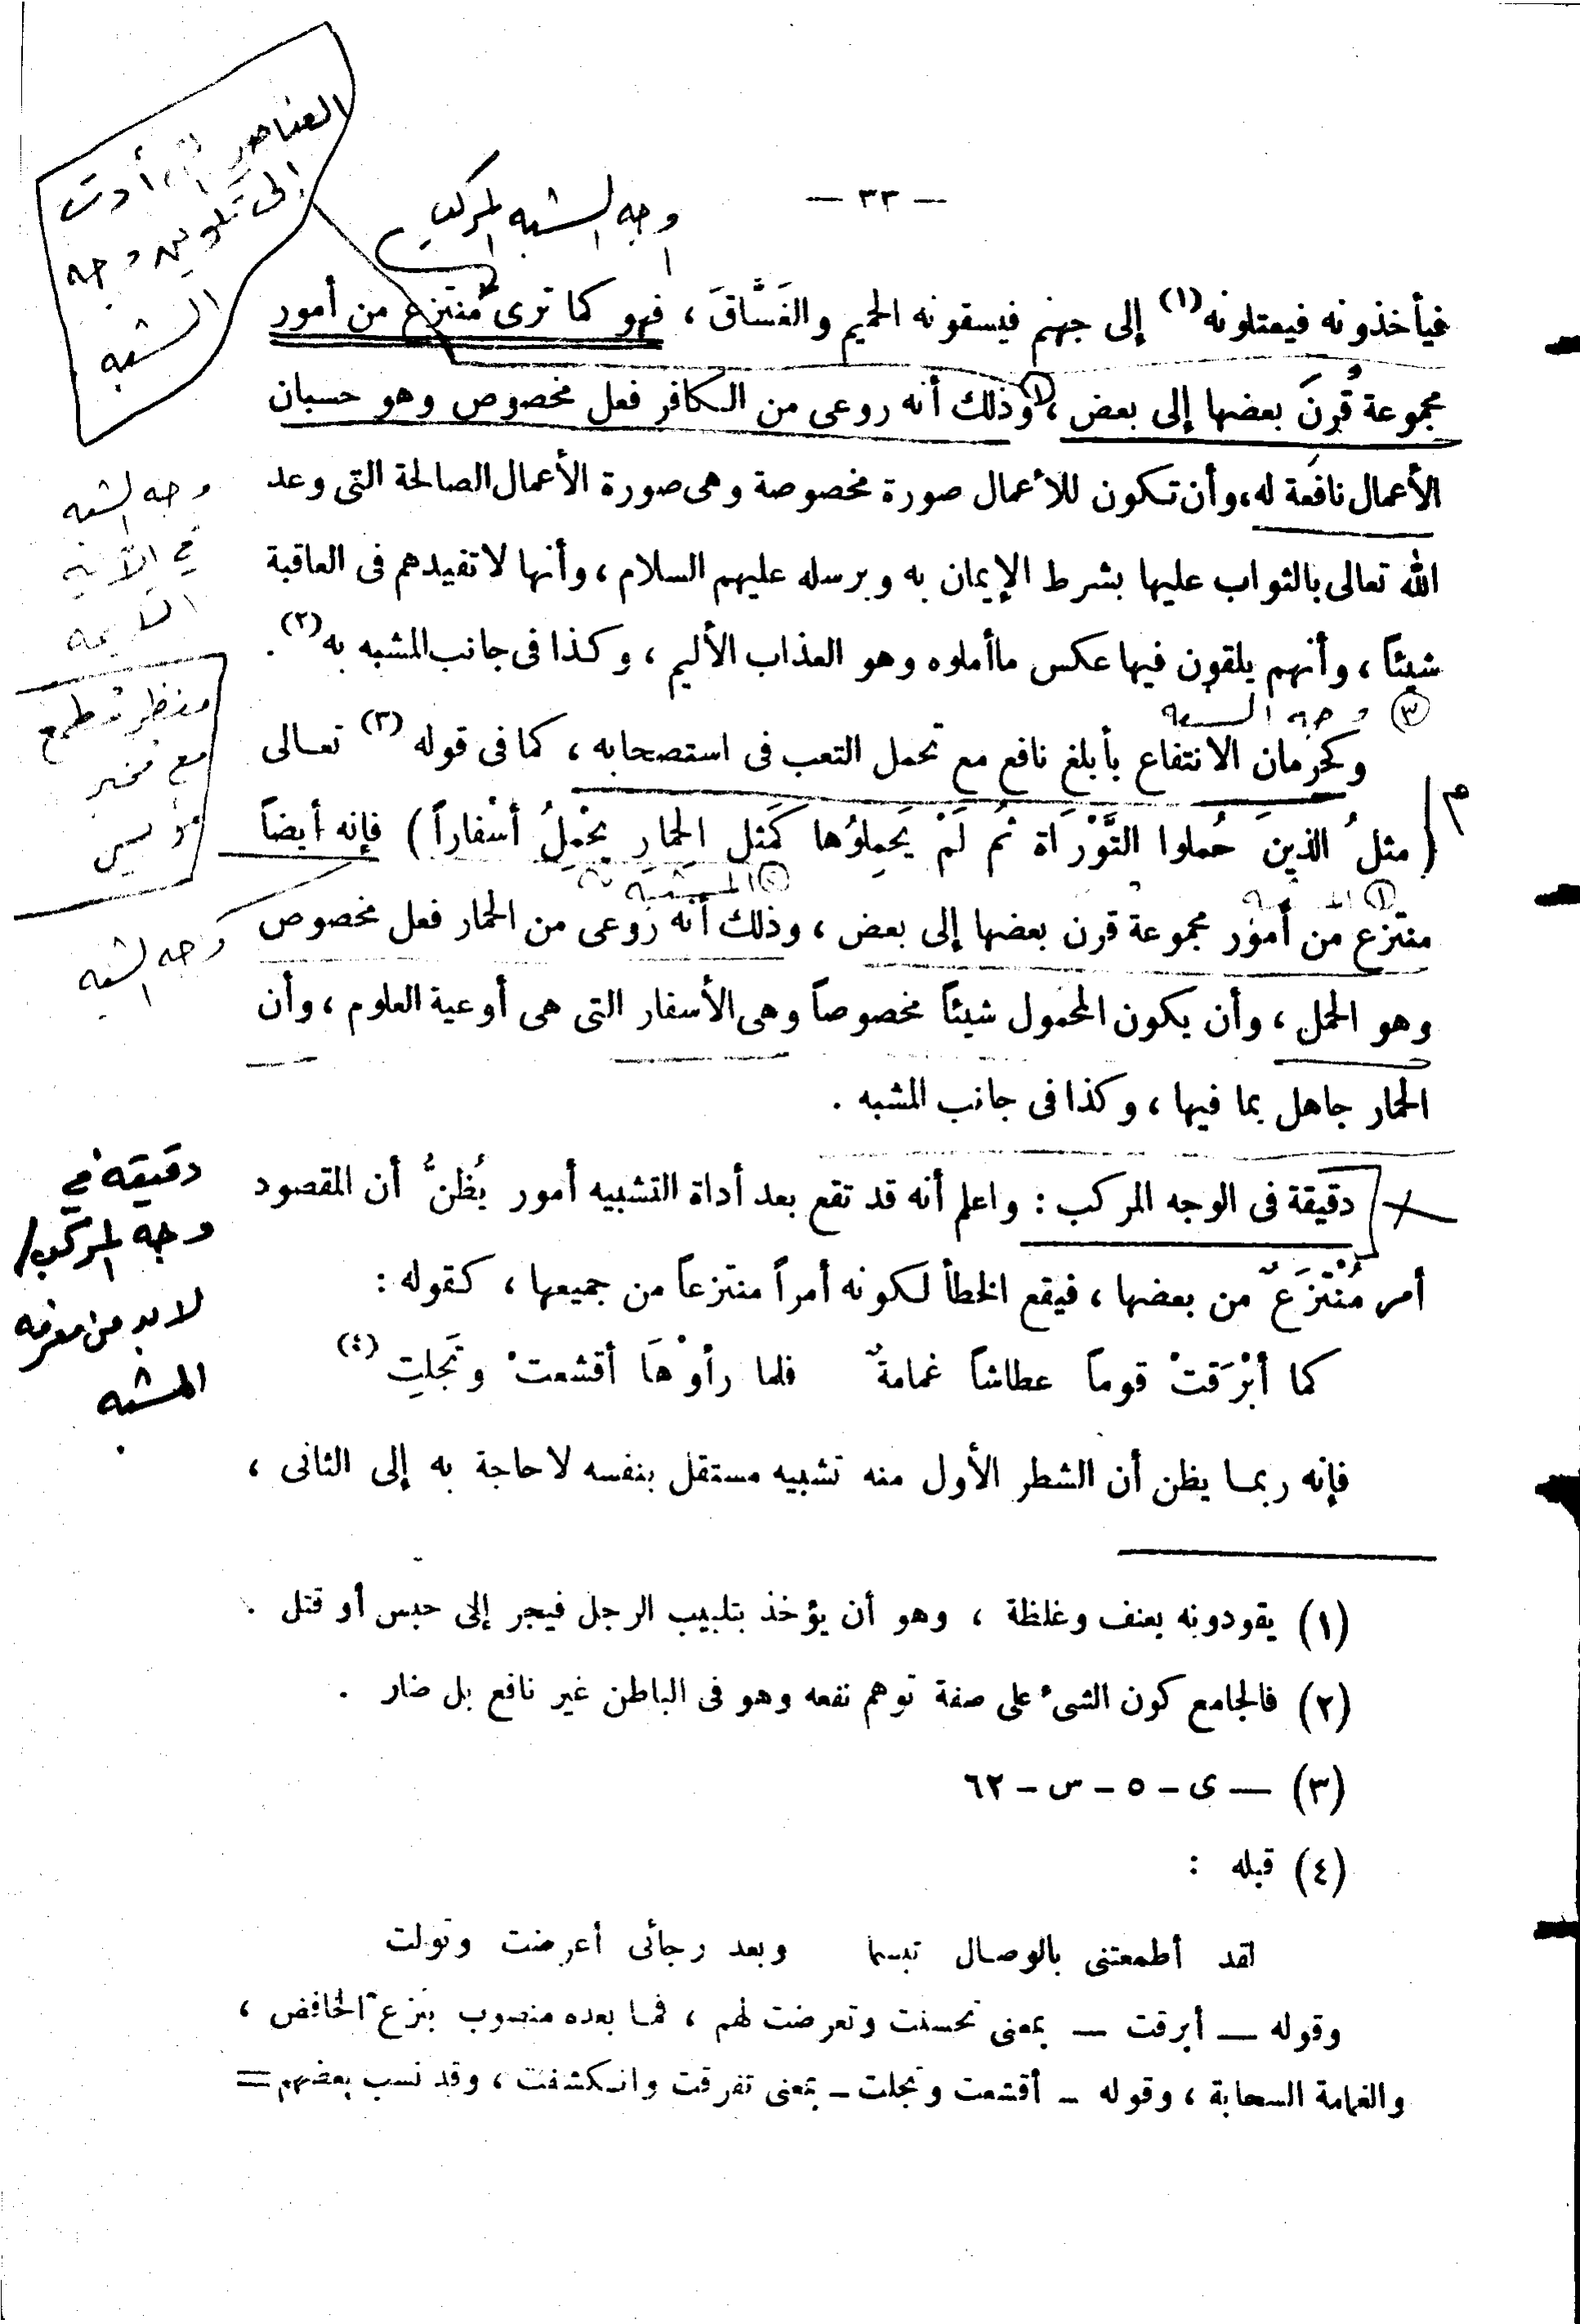 — ٣٣ —
وجه الشبه المركب
العناصر التي أدت
إلى تكوين وجه
الشبه
فيأخذونه فيعتلونه(١) إلى جهنم فيسقونه الحميم والغَسَّاقَ ، فهو كما ترى مُنتزع من أمور
مجموعة قُرِنَ بعضها إلى بعض ، وذلك أنه روعى من الكافر فعل مخصوص وهو حسبان
الأعمال نافعة له، وأن تكون للأعمال صورة مخصوصة وهى صورة الأعمال الصالحة التى وعد
الله تعالى بالثواب عليها بشرط الإيمان به وبرسله عليهم السلام ، وأنها لا تفيدهم فى العاقبة
شيئاً ، وأنهم يلقون فيها عكس ما أملوه وهو العذاب الأليم ، وكذا فى جانب المشبه به(٢) .
وجه الشبه
في الآية
منظر مطمع
مع مخبر
③ وجه الشبه
وكحرمان الانتفاع بأبلغ نافع مع تحمل التعب فى استصحابه ، كما فى قوله (٣) تعالى
م
( مثلُ الذينَ حُملوا التَّوْرَاة ثم لَمْ يَحمِلوُها كَمَثل الحمارِ يحْمِلُ أسْفاراً ) فإنه أيضاً
① المشبه ② المشبه به
منتزع من أمور مجموعة قرن بعضها إلى بعض ، وذلك أنه روعى من الحمار فعل مخصوص
وجه الشبه
وهو الحمل ، وأن يكون المحمول شيئاً مخصوصاً وهى الأسفار التى هى أوعية العلوم ، وأن
الحمار جاهل بما فيها ، وكذا فى جانب المشبه .
دقيقة فى الوجه المركب : واعلم أنه قد تقع بعد أداة التشبيه أمور يُظنُّ أن المقصود
أمر مُنْتَزَعٌ من بعضها ، فيقع الخطأ لكونه أمراً منتزعاً من جميعها ، كقوله :
دقيقه في
وجه المركب /
لابد من معرفه
المشبه
كما أبْرَقتْ قوماً عطاشاً غمامةٌ فلما رأوْهَا أقشعتْ وتَجلتِ (٤)
فإنه ربما يظن أن الشطر الأول منه تشبيه مستقل بنفسه لا حاجة به إلى الثانى ،
(١) يقودونه بعنف وغلظة ، وهو أن يؤخذ بتلبيب الرجل فيجر إلى حبس أو قتل .
(٢) فالجامع كون الشىء على صفة توهم نفعه وهو فى الباطن غير نافع بل ضار .
(٣) — ى - ٥ - س - ٦٢
(٤) قبله :
لقد أطمعتنى بالوصال تبسما وبعد رجائى أعرضت وتولت
وقوله — أبرقت — بمعنى تحسنت وتعرضت لهم ، فما بعده منصوب بنزع الخافض ،
والغمامة السحابة ، وقوله - أقشعت وتجلت - بمعنى تفرقت وانكشفت ، وقد نسب بعضهم =